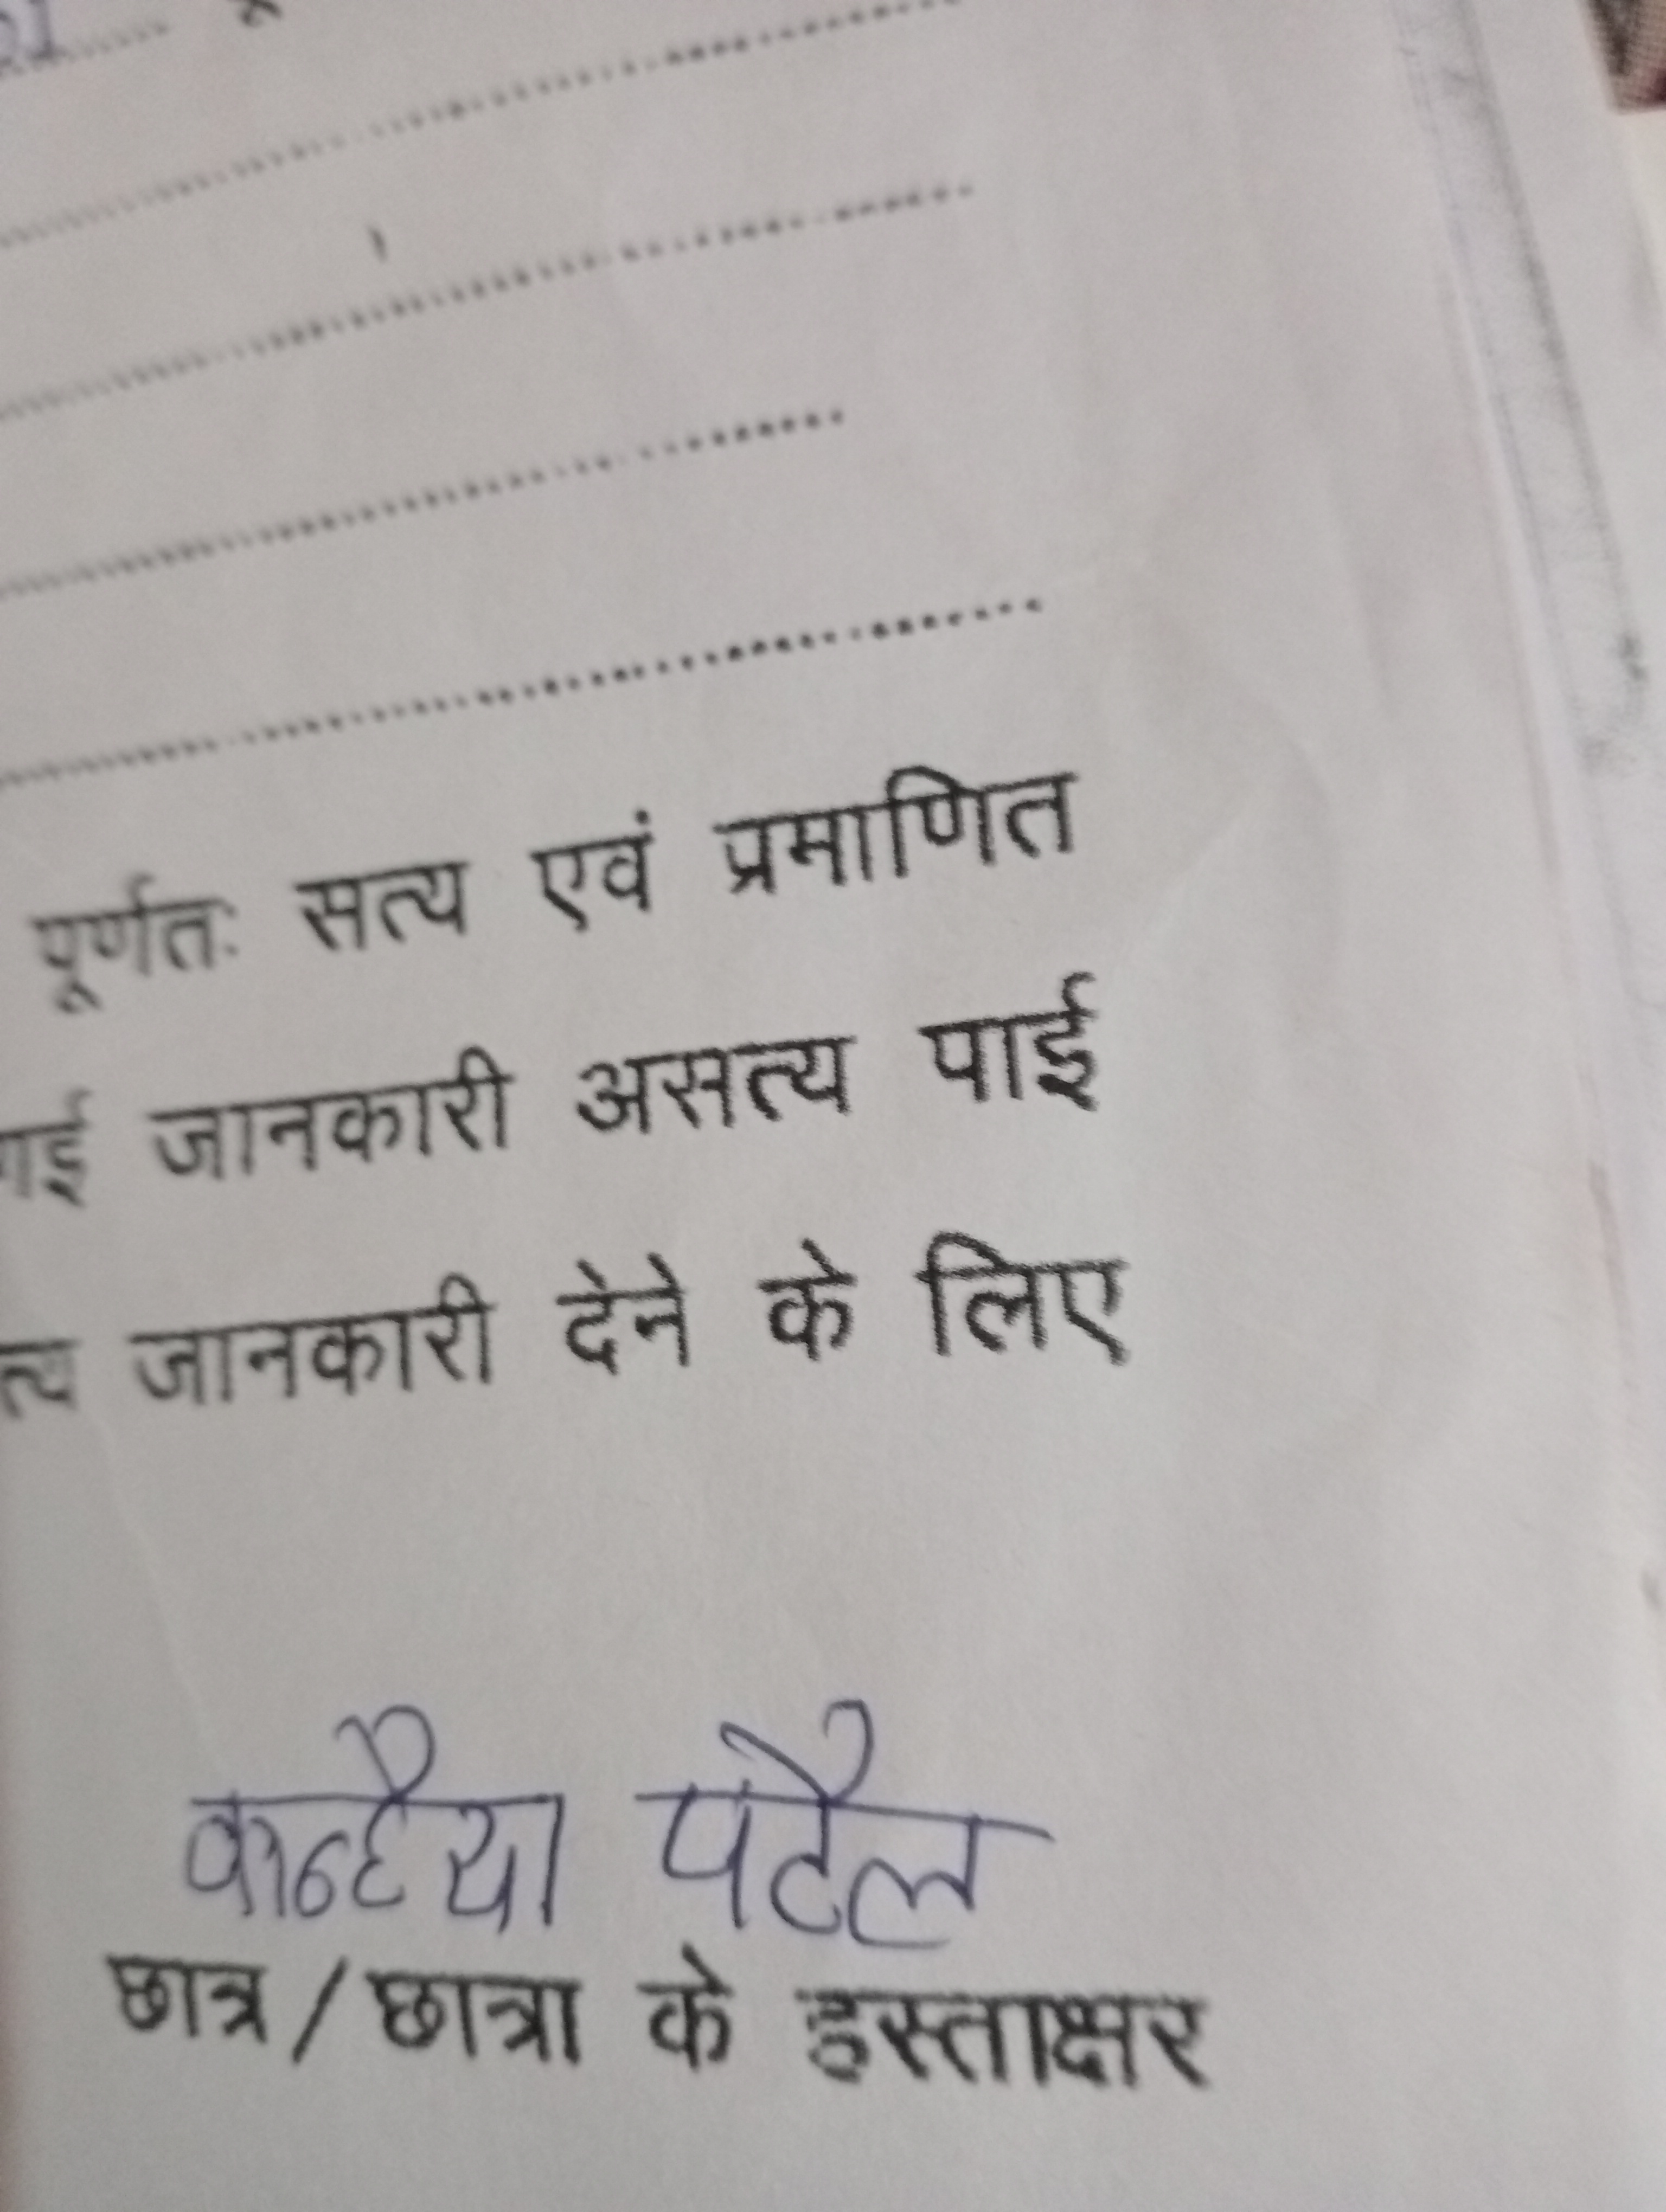 पूर्णतः सत्य एवं प्रमाणित
गई जानकारी असत्य पाई
जानकारी देने के लिए
कन्हैया पटैल
छात्र / छात्रा के हस्ताक्षर